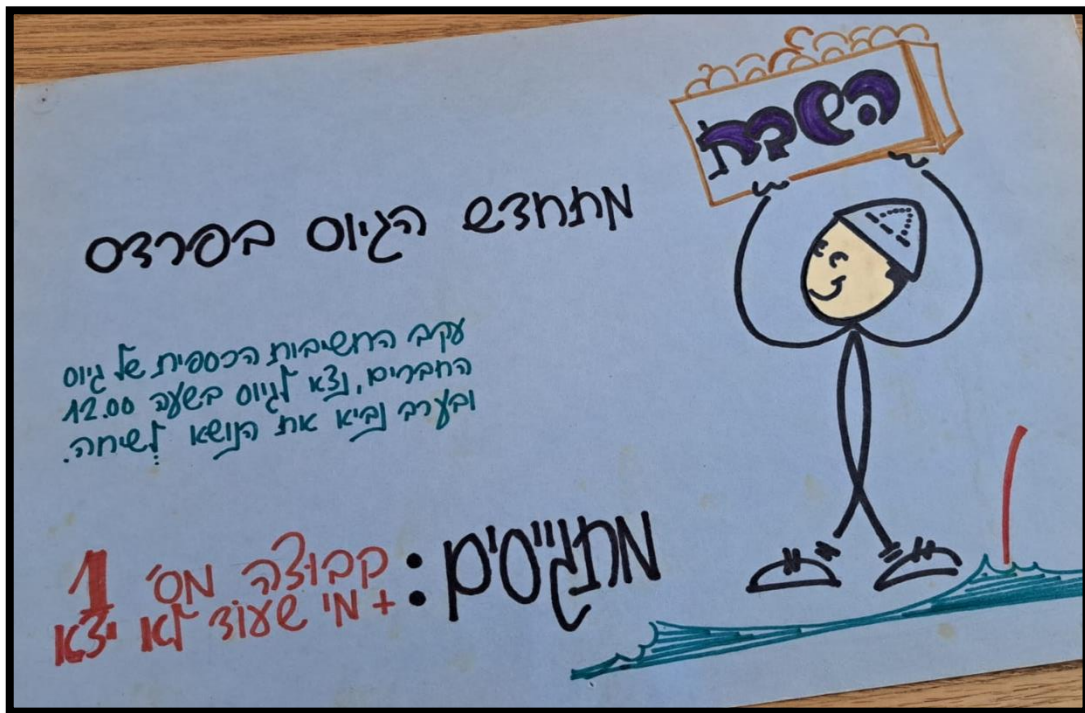 השבת
מתחדש הגיוס בפרדס
עקב החשיבות הכספית של גיוס
החברים, נצא לגיוס בשעה 12.00
ובערב נביא את הנושא לשיחה.
מתגייסים: קבוצה מס' 1
+ מי שעוד לא יצא